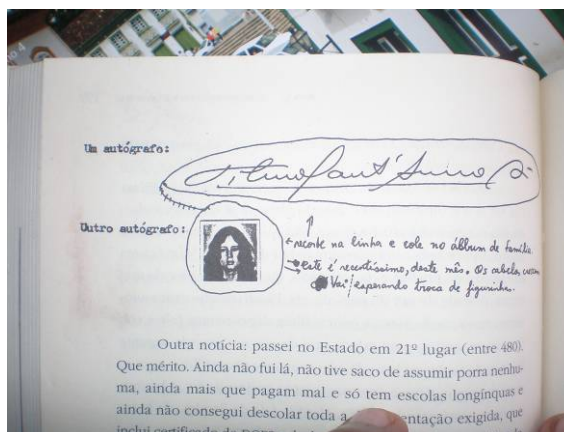 Um autógrafo:
Outro autógrafo:
recorte na linha e cole no álbum de família.
este é recentíssimo, deste mês. Os cabelos
Vai esperando troca de figurinhas.
Outra notícia: passei no Estado em 21º lugar (entre 480).
Que mérito. Ainda não fui lá, não tive saco de assumir porra nenhu-
ma, ainda mais que pagam mal e só tem escolas longínquas e
ainda não consegui descolar toda a entação exigida, que
inclui certificado de